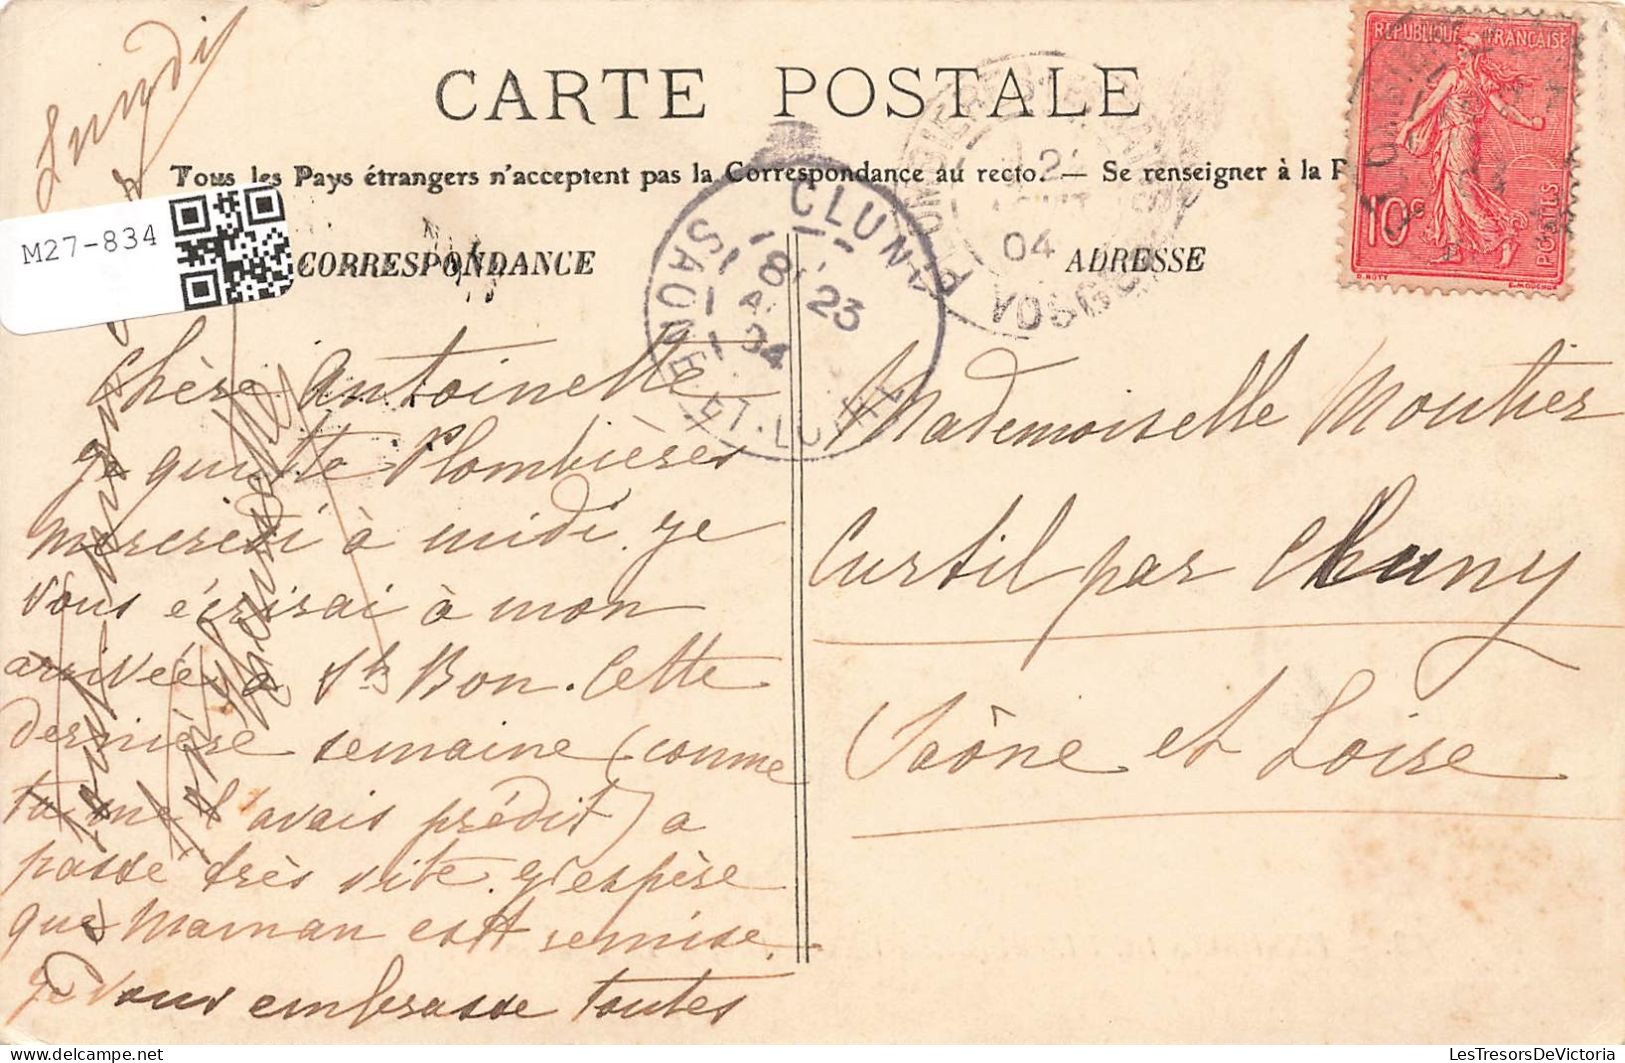 Lundi
CARTE POSTALE
Tous les Pays étrangers n'acceptent pas la Correspondance au recto. — Se renseigner à la P
M27-834
CORRESPONDANCE
ADRESSE
REPUBLIQUE FRANÇAISE
10c
POSTES
O. ROTY
E. MOUCHON
CLUNY
8 23
04
SAONE-ET-LOIRE
PLOMBIERES
04
VOSGES
Chère Antoinette
je quitte Plombières
mercredi à midi. Je
vous écrirai à mon
arrivée à St Bon. Cette
dernière semaine (comme
tu me l'avais prédit) a
passé très vite. J'espère
que Maman est remise.
Je vous embrasse toutes
Mademoiselle Moutier
Curtil par Cluny
Saône et Loire
LesTresorsDeVictoria